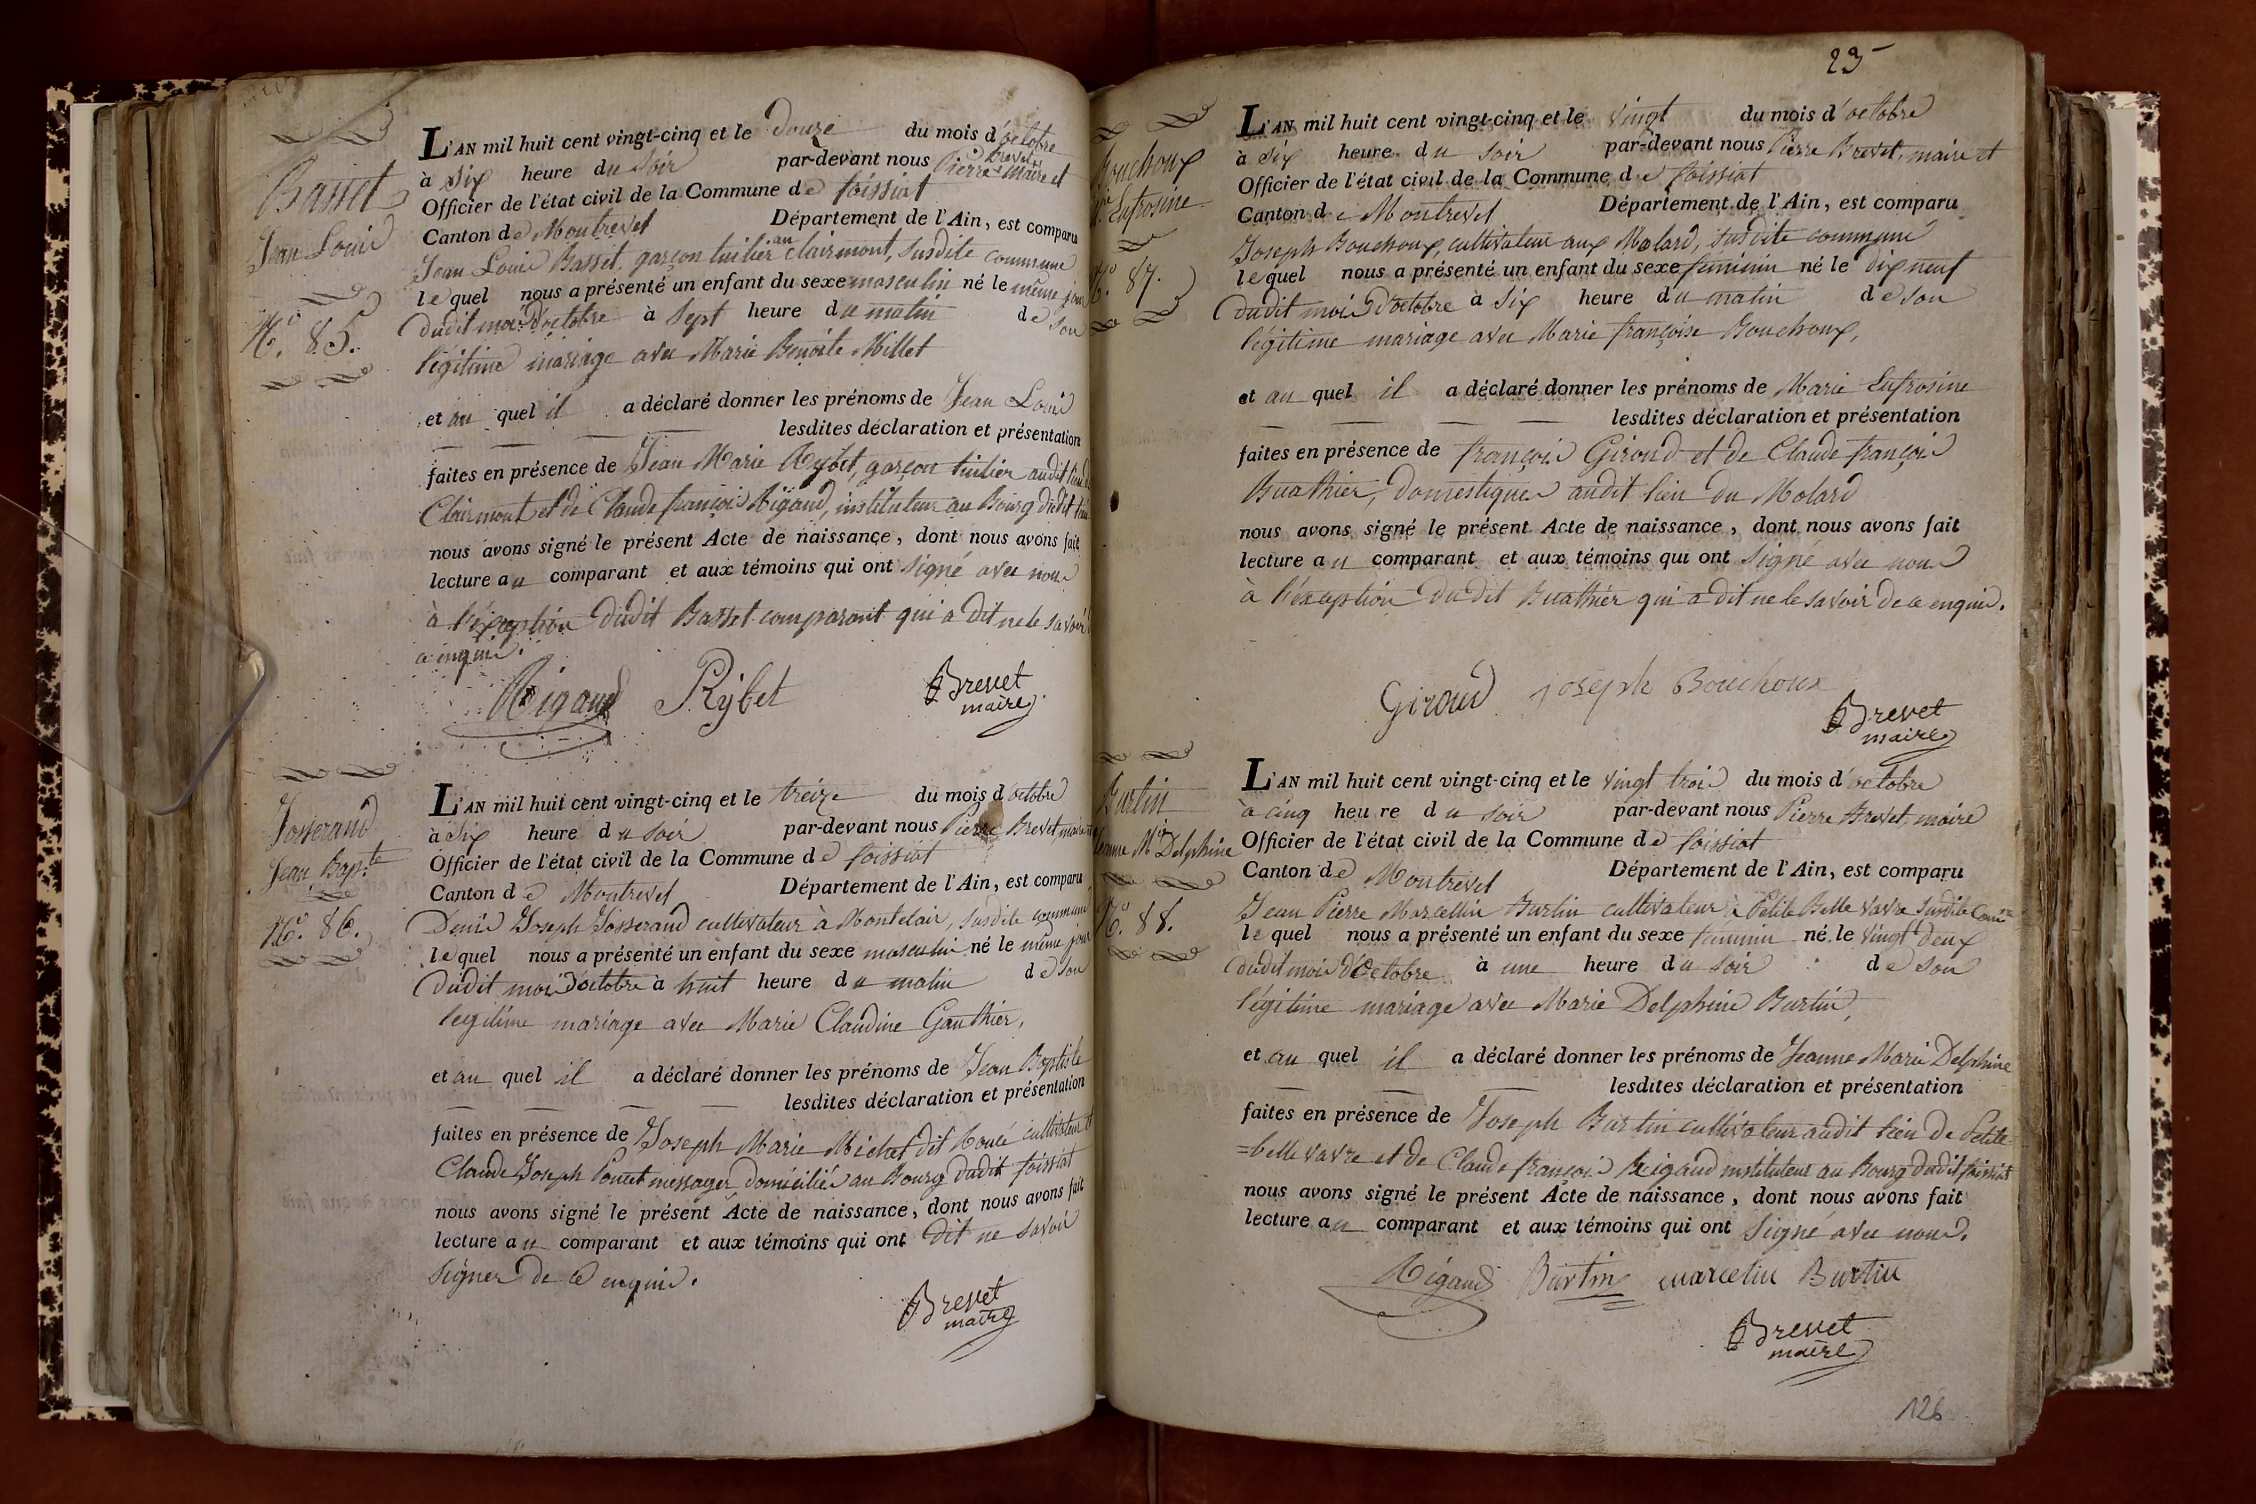 Basset
Jean Louis
N.o 85.
L'AN mil huit cent vingt-cinq et le douze du mois d'octobre
à six heure du soir par-devant nous Pierre Brevet, maire et
Officier de l'état civil de la Commune de foissiat
Canton de Montrevel Département de l'Ain, est comparu
Jean Louis Basset, garçon tuilier au clairmont, susdite commune
lequel nous a présenté un enfant du sexe masculin né le même jour
dudit mois d'octobre à sept heure du matin de son
légitime mariage avec Marie Benoite Millet
et au quel il a déclaré donner les prénoms de Jean Louis
lesdites déclaration et présentation
faites en présence de Jean Marie Rybet, garçon tuilier audit lieu de
Clairmont et de Claude françois Rigaud, instituteur au Bourg dudit
nous avons signé le présent Acte de naissance, dont nous avons fait
lecture au comparant et aux témoins qui ont signé avec nous
à l'éxception dudit Basset comparant qui a dit ne le savoir
ce enquis.
Rigaud Rybet Brevet
maire
Josserand
Jean Bap.te
N.o 86.
L'AN mil huit cent vingt-cinq et le treize du mois d'octobre
à six heure du soir par-devant nous Pierre Brevet, maire
Officier de l'état civil de la Commune de foissiat
Canton de Montrevel Département de l'Ain, est comparu
Denis Joseph Josserand cultivateur à Montclair, susdite commune
lequel nous a présenté un enfant du sexe masculin né le même jour
dudit mois d'octobre à huit heure du matin de son
légitime mariage avec Marie Claudine Gauthier,
et au quel il a déclaré donner les prénoms de Jean Baptiste
lesdites déclaration et présentation
faites en présence de Joseph Marie Michel dit cultivateur et
Claude Joseph Poncet messager domiciliés au Bourg dudit foissiat
nous avons signé le présent Acte de naissance, dont nous avons fait
lecture au comparant et aux témoins qui ont dit ne savoir
signer de ce enquis.
Brevet
maire
23
Bouchoux
M.ie Eufrosine
N.o 87.
L'AN mil huit cent vingt-cinq et le vingt du mois d'octobre
à six heure du soir par-devant nous Pierre Brevet, maire et
Officier de l'état civil de la Commune de foissiat
Canton de Montrevel Département de l'Ain, est comparu
Joseph Bouchoux, cultivateur aux Molard, susdite commune
lequel nous a présenté un enfant du sexe feminin né le dix neuf
dudit mois d'octobre à six heure du matin de son
légitime mariage avec Marie françoise Bouchoux,
et au quel il a déclaré donner les prénoms de Marie Eufrosine
lesdites déclaration et présentation
faites en présence de françois Giroud et de Claude françois
Buathier, domestiques audit lieu du Molard
nous avons signé le présent Acte de naissance, dont nous avons fait
lecture au comparant et aux témoins qui ont signé avec nous
à l'éxception dudit Buathier qui a dit ne le savoir de ce enquis.
Giroud joseph Bouchoux
Brevet
maire
Burtin
Jeanne M.ie Delphine
N.o 88.
L'AN mil huit cent vingt-cinq et le vingt trois du mois d'octobre
à cinq heure du soir par-devant nous Pierre Brevet, maire
Officier de l'état civil de la Commune de foissiat
Canton de Montrevel Département de l'Ain, est comparu
Jean Pierre Marcellin Burtin cultivateur à Petite Belle vavre susdite Comune
lequel nous a présenté un enfant du sexe feminin né le vingt deux
dudit mois d'Octobre à une heure du soir de son
légitime mariage avec Marie Delphine Burtin,
et au quel il a déclaré donner les prénoms de Jeanne Marie Delphine
lesdites déclaration et présentation
faites en présence de Joseph Burtin cultivateur audit lieu de Petite
=belle vavre et de Claude françois Rigaud instituteur au Bourg dudit foissiat
nous avons signé le présent Acte de naissance, dont nous avons fait
lecture au comparant et aux témoins qui ont signé avec nous.
Rigaud Burtin marcelin Burtin
Brevet
maire
126